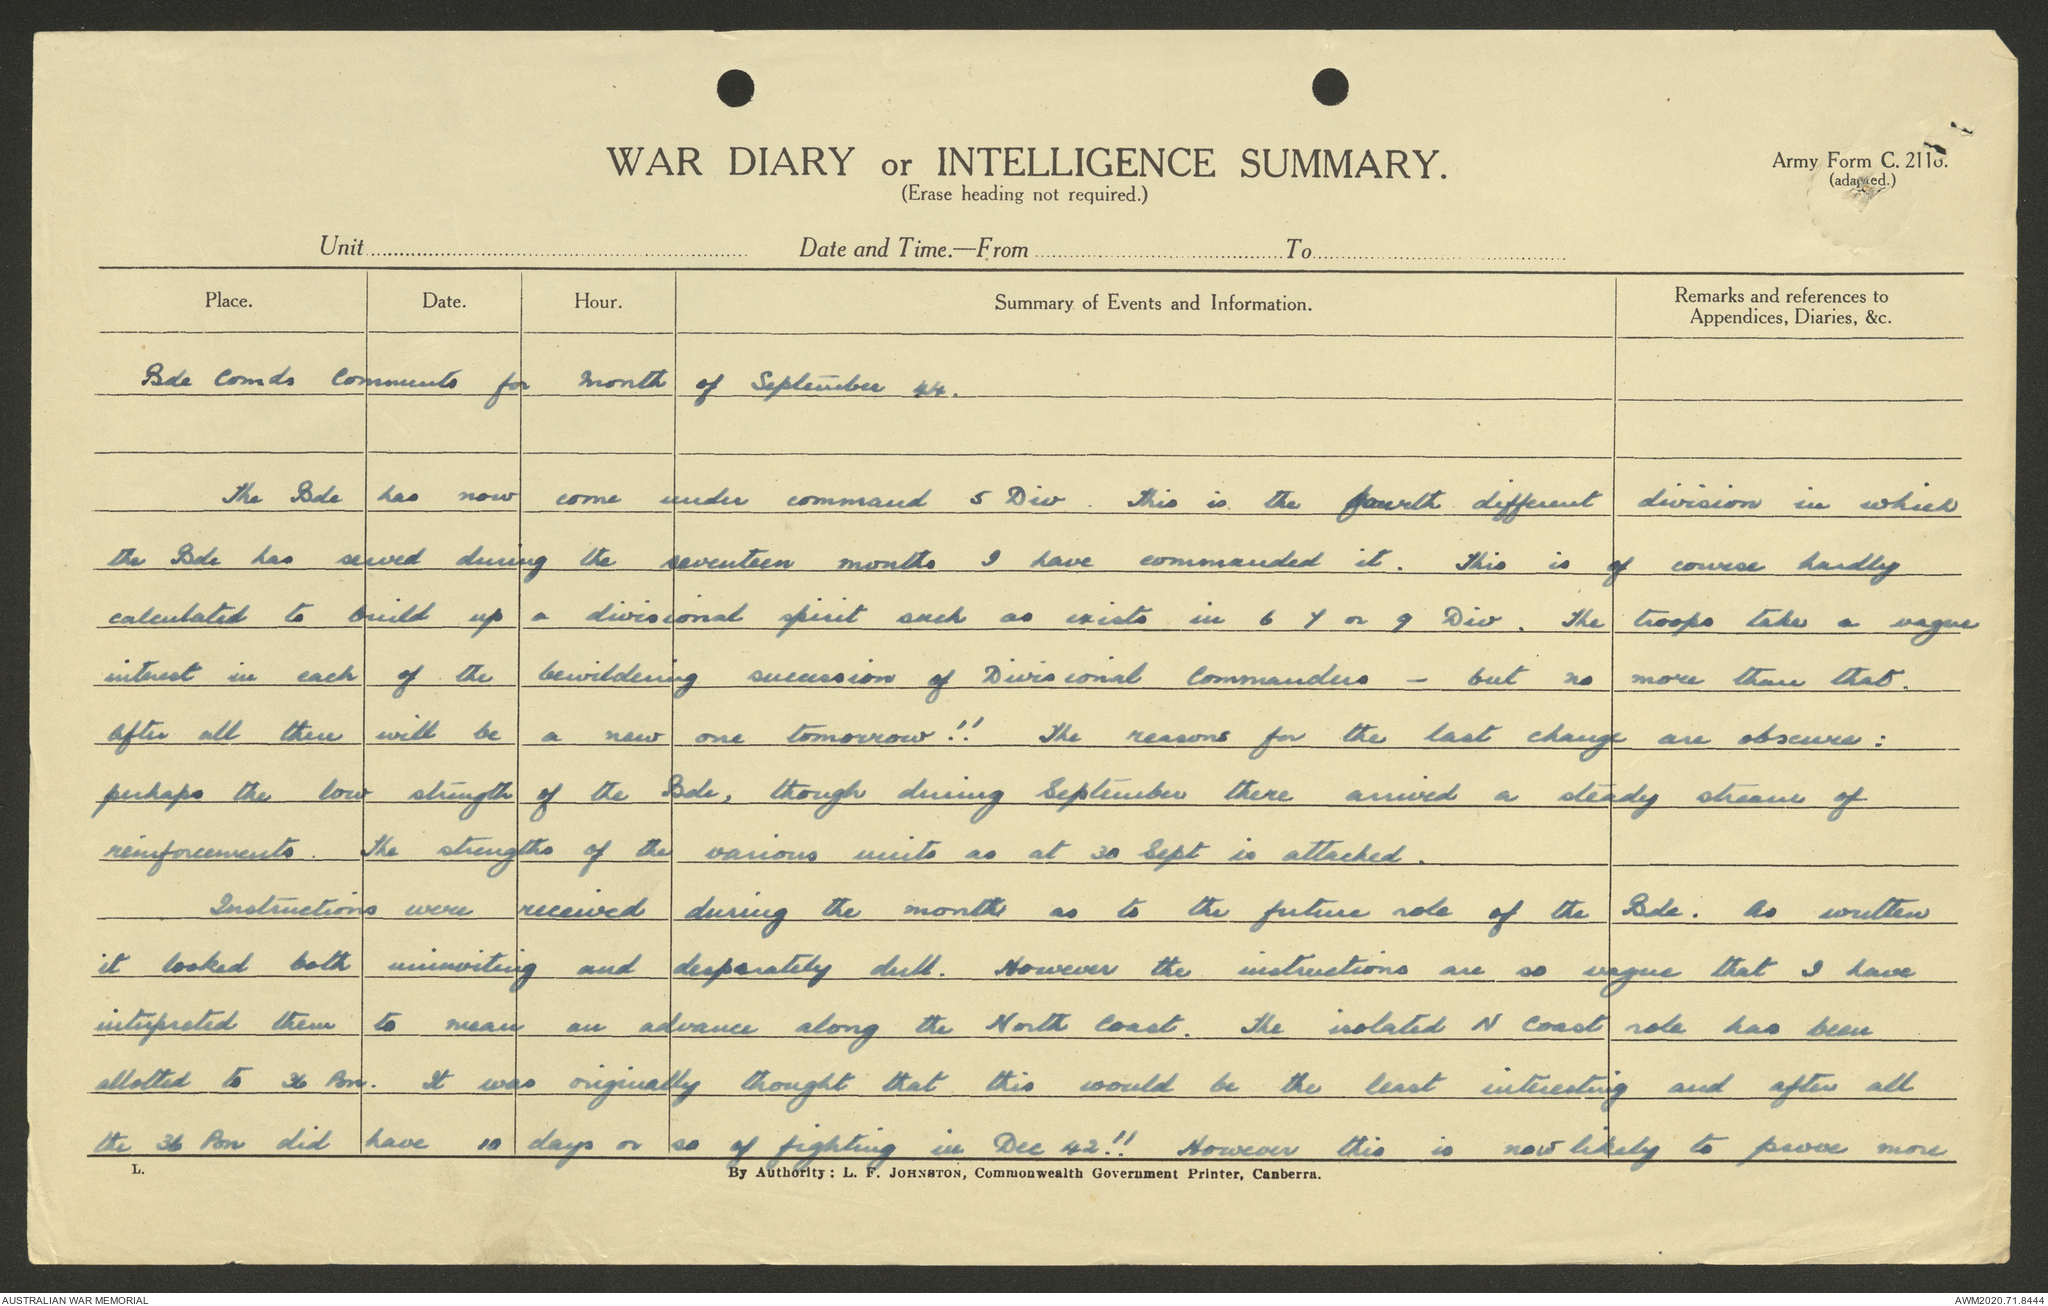 WAR DIARY or INTELLIGENCE SUMMARY.
Army Form C. 2118.
(Erase heading not required.)
(adapted.)
Unit
Date and Time.—From
To
Place.
Date.
Hour.
Summary of Events and Information.
Remarks and references to
Appendices, Diaries, &c.
Bde Comds Comments for Month of September 44.
The Bde has now come under command 5 Div. This is the fourth different division in which
the Bde has served during the seventeen months I have commanded it. This is of course hardly
calculated to build up a divisional spirit such as exists in 6 7 or 9 Div. The troops take a vague
interest in each of the bewildering sucession of Divisional Commanders – but no more than that.
After all there will be a new one tomorrow!! The reasons for the last change are obscure:
perhaps the low strength of the Bde, though during September there arrived a steady stream of
reinforcements. The strengths of the various units as at 30 Sept is attached.
Instructions were received during the month as to the future role of the Bde. As written
it looked both uninviting and desparately dull. However the instructions are so vague that I have
interpreted them to mean an advance along the North Coast. The isolated N Coast role has been
allotted to 36 Bn. It was originally thought that this would be the least interesting and after all
the 36 Bn did have 10 days or so of fighting in Dec 42!! However this is now likely to prove more
L.
By Authority: L. F. JOHNSTON, Commonwealth Government Printer, Canberra.
AUSTRALIAN WAR MEMORIAL
AWM2020.71.8444